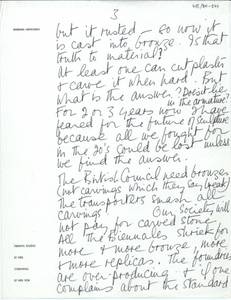 3
but it rusted so now it
is cast into bronze. Is that
truth to material?
At least one can cut plaster
& carve it when hard. But
what is the answer? Does it lie
in the armature?
For 2 or 3 years now I have
feared for the future of sculpture
because all we fought for
in the 30's could be lost unless
we find the answer.
The British Council need bronzes
(not carvings which they say
The transporters smash all
carvings. Our Society will
not pay for carved stone.
All the Biennales shriek for
more & more bronze, more
& more replicas. The foundries
are over-producing & if one
complains about the standard
BARBARA HEPWORTH
TREWYN STUDIO
ST IVES
CORNWALL